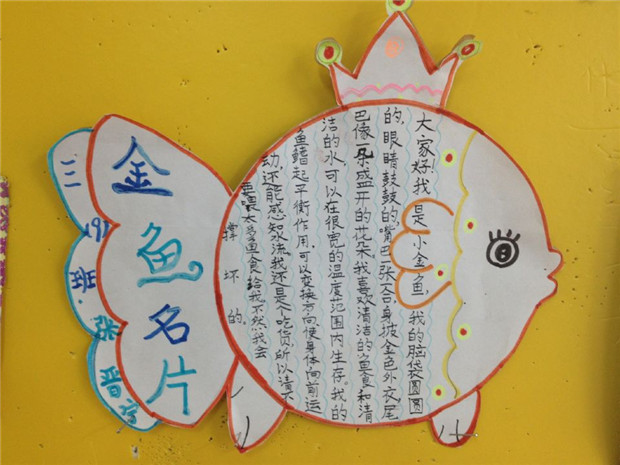 金鱼名片
三(9)班.张晋宁
大家好,我是小金鱼,我的脑袋圆圆
的,眼睛鼓鼓的,嘴巴一张一合,身披金色外衣,尾
巴像一朵盛开的花朵。我喜欢清洁的鱼食和清
洁的水,可以在很宽的温度范围内生存。我的
鱼鳍起平衡作用,可以变换方向使身体向前运
动,还能感知水流。我还是个吃货,所以请不
要喂太多鱼食给我,不然我会
撑坏的。